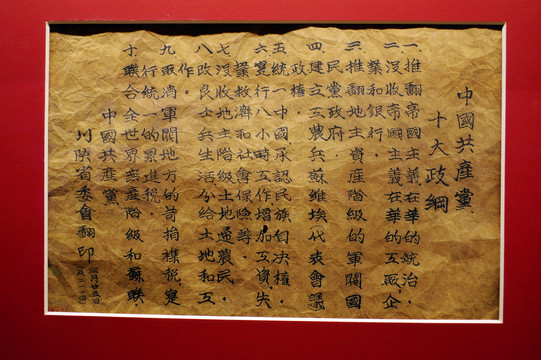 中國共產黨
十大政綱
一.推翻帝國主義在華的統治，
二.沒收帝國主義在華的工廠，企
業和銀行．
三.推翻地主資產階級的軍閥國
民黨政府．
四.建立工農兵蘇維埃代表會議
政權．
五.統一中國，承認民族自決權．
六.實行八小時工作，增加工資，失
業救濟和社會保險等．
七.沒收地主階級土地還農民．
八.改良士兵生活，分給土地和工
作．
九.取消軍閥地方的苛捐雜稅，實
行統一的累進稅．
十.聯合全世界無產階級和蘇聯．
中國共產黨
川陝省委會翻印